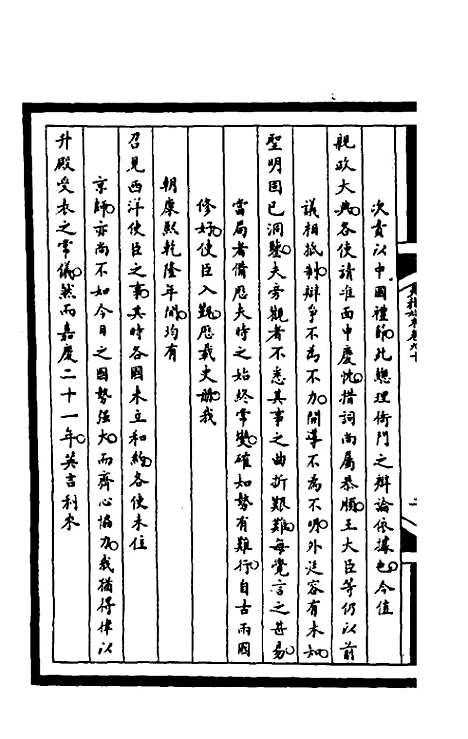 次責以中國禮節此總理衙門之辯論依據也今值
親政大典各使請准面申慶忱措詞尚屬恭順王大臣等仍以前
議相抵制辯爭不為不力開導不為不明外廷容有未知
聖明固已洞鑒夫旁觀者不悉其事之曲折艱難每覺言之甚易
當局者備歷夫時之始終常變確知勢有難行自古兩國
修好使臣入覲歷載史冊我
朝康熙乾隆年間均有
召見西洋使臣之事其時各國未立和約各使未住
京師亦尚不如今日之國勢強大而齊心協力我猶得律以
升殿受表之常儀然而嘉慶二十一年英吉利來